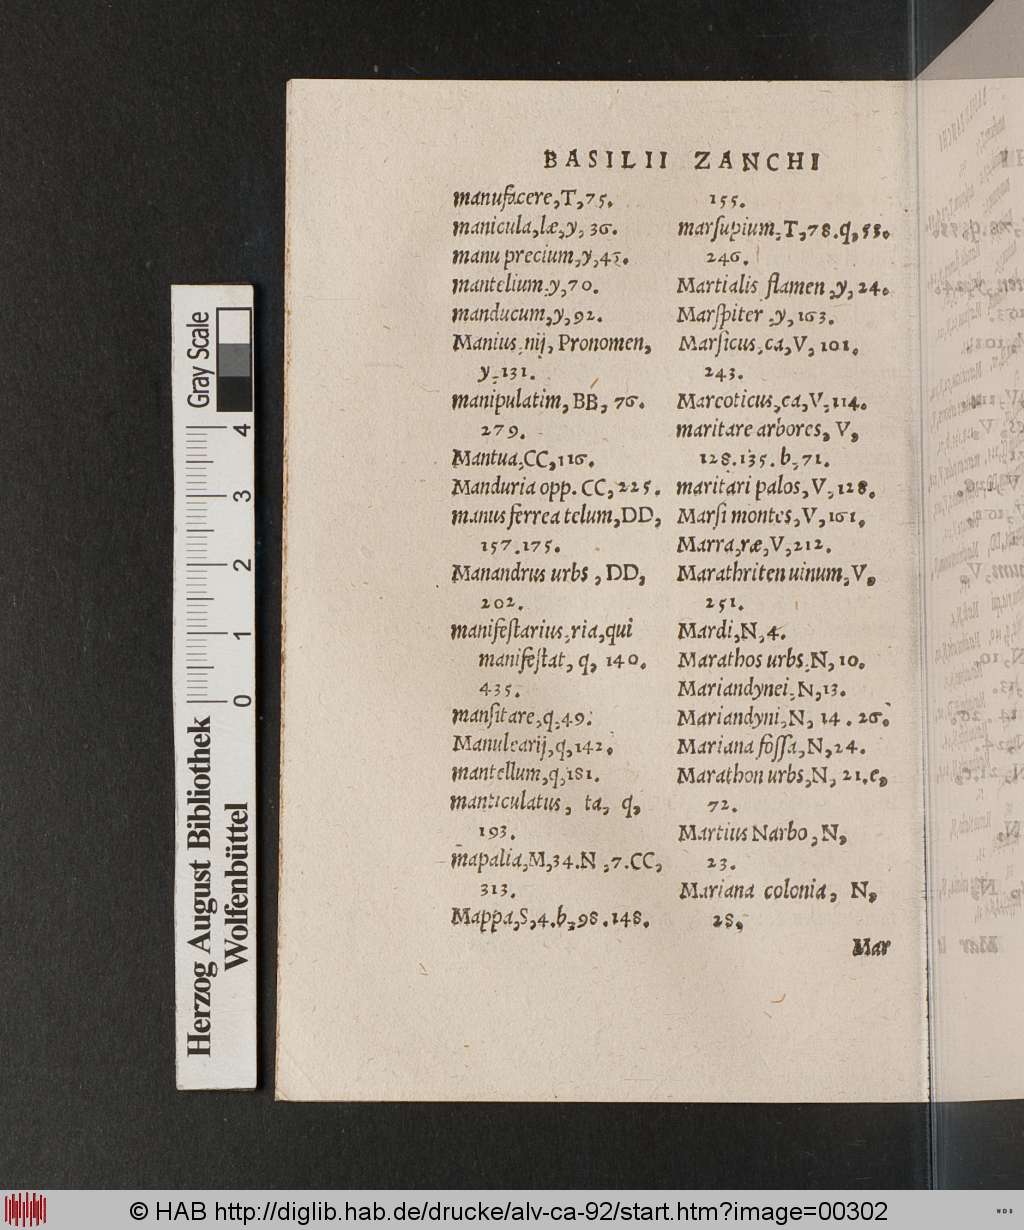 BASILII ZANCHI
manufacere, T, 75.
manicula, læ, y, 36.
manu precium, y, 45.
mantelium, y, 70.
manducum, y, 92.
Manius, nij, Pronomen,
y, 131.
manipulatim, BB, 76.
279.
Mantua, CC, 116.
Manduria opp. CC, 225.
manus ferrea telum, DD,
157. 175.
Manandrus urbs, DD,
202.
manifestarius, ria, qui
manifestat, q, 140.
435.
mansitare, q, 49.
Manulearij, q, 142.
mantellum, q, 181.
manticulatus, ta, q,
193.
mapalia, M, 34. N, 7. CC,
313.
Mappa, S, 4. b, 98. 148.
155.
marsupium, T, 78. q, 53.
246.
Martialis flamen, y, 24.
Marspiter, y, 163.
Marsicus, ca, V, 101.
243.
Marcoticus, ca, V, 114.
maritare arbores, V,
128. 135. b, 71.
maritari palos, V, 128.
Marsi montes, V, 161,
Marra, ræ, V, 212.
Marathriten uinum, V,
251.
Mardi, N, 4.
Marathos urbs, N, 10.
Mariandynei, N, 13.
Mariandyni, N, 14. 26.
Mariana fossa, N, 24.
Marathon urbs, N, 21. e,
72.
Martius Narbo, N,
23.
Mariana colonia, N,
28,
Mar
Herzog August Bibliothek
Wolfenbüttel
Gray Scale
0 1 2 3 4
© HAB http://diglib.hab.de/drucke/alv-ca-92/start.htm?image=00302